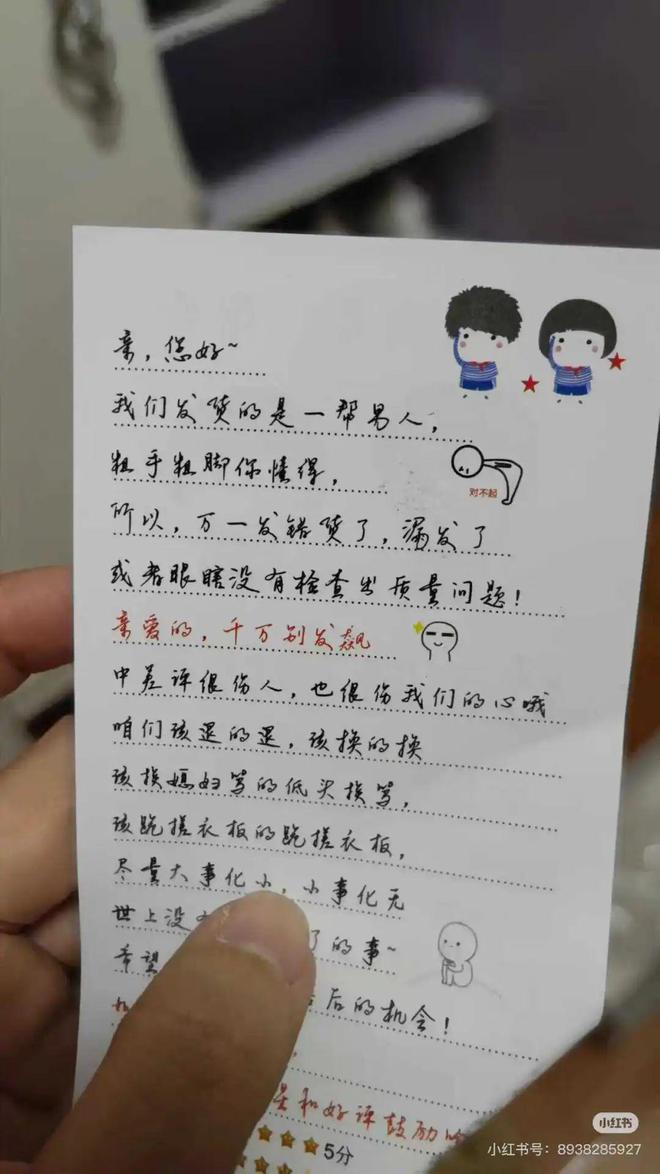 亲，您好~
我们发货的是一帮男人，
粗手粗脚你懂得，
对不起
所以，万一发错货了，漏发了
或者眼瞎没有检查出质量问题！
亲爱的，千万别发飙
中差评很伤人，也很伤我们的心哦
咱们该退的退，该换的换
该挨媳妇骂的低头挨骂，
该跪搓衣板的跪搓衣板，
尽量大事化小，小事化无
世上没 了的事~
希望 后的机会！
星和好评鼓励
5分
小红书
小红书号：8938285927